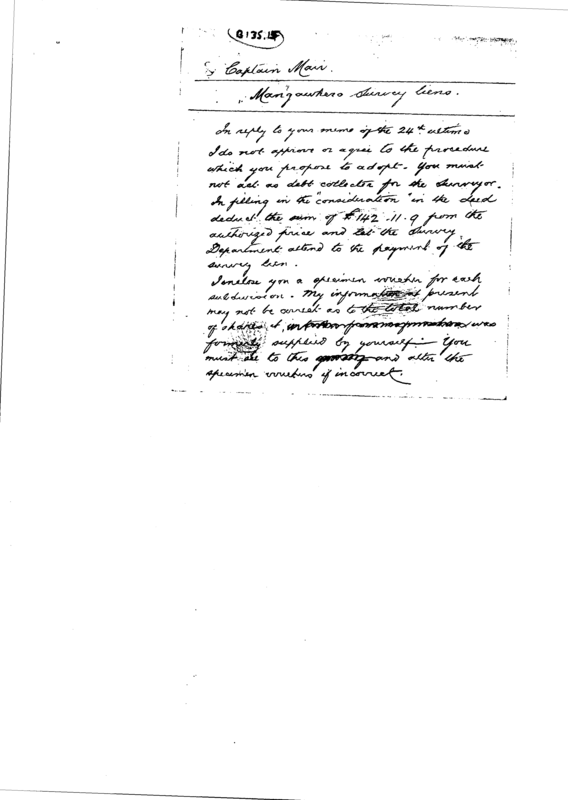 G135.LF
Captain Mair.
Mangawhero Survey liens.
In reply to your memo of the 24th ultimo
I do not approve or agree to the procedure
which you propose to adopt. You must
not act as debt collector for the Surveyor.
In filling in the "consideration" in the deed
deduct the sum of £142.11.9 from the
authorized price and let the Survey
Department attend to the payment of the
survey lien.
I enclose you a specimen voucher for each
subdivision. My information at present
may not be correct as to the total number
of shares, it was
formerly supplied by yourself - You
must see to this and alter the
specimen vouchers if incorrect.